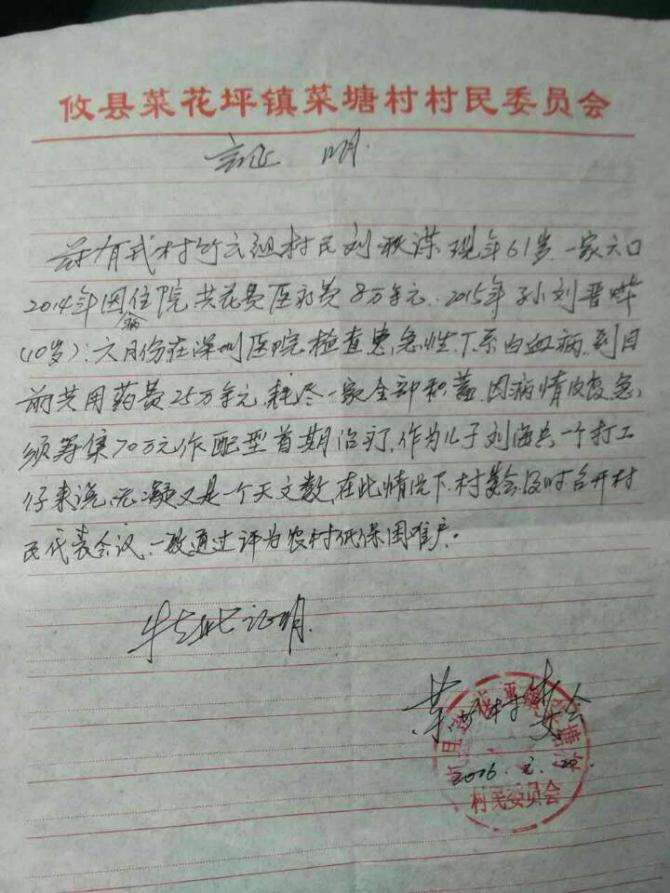 攸县菜花坪镇菜塘村村民委员会
证 明
兹有我村竹云组村民刘秋谋 现年61岁 一家六口
2014年因病住院共花费医药费8万余元. 2015年孙刘晋晔
(10岁): 六月份在深圳医院检查患急性.T.系白血病, 到目
前共用药费25万余元, 耗尽一家全部积蓄, 因病情改变急,
须筹集70万元作配型首期治疗, 作为儿子刘海兵一个打工
仔来说, 无凝又是一个天文数, 在此情况下, 村委会及时召开村
民代表会议, 一致通过评为农村低保困难户。
特此证明.
菜塘村委会
2016. 元.
村民委员会